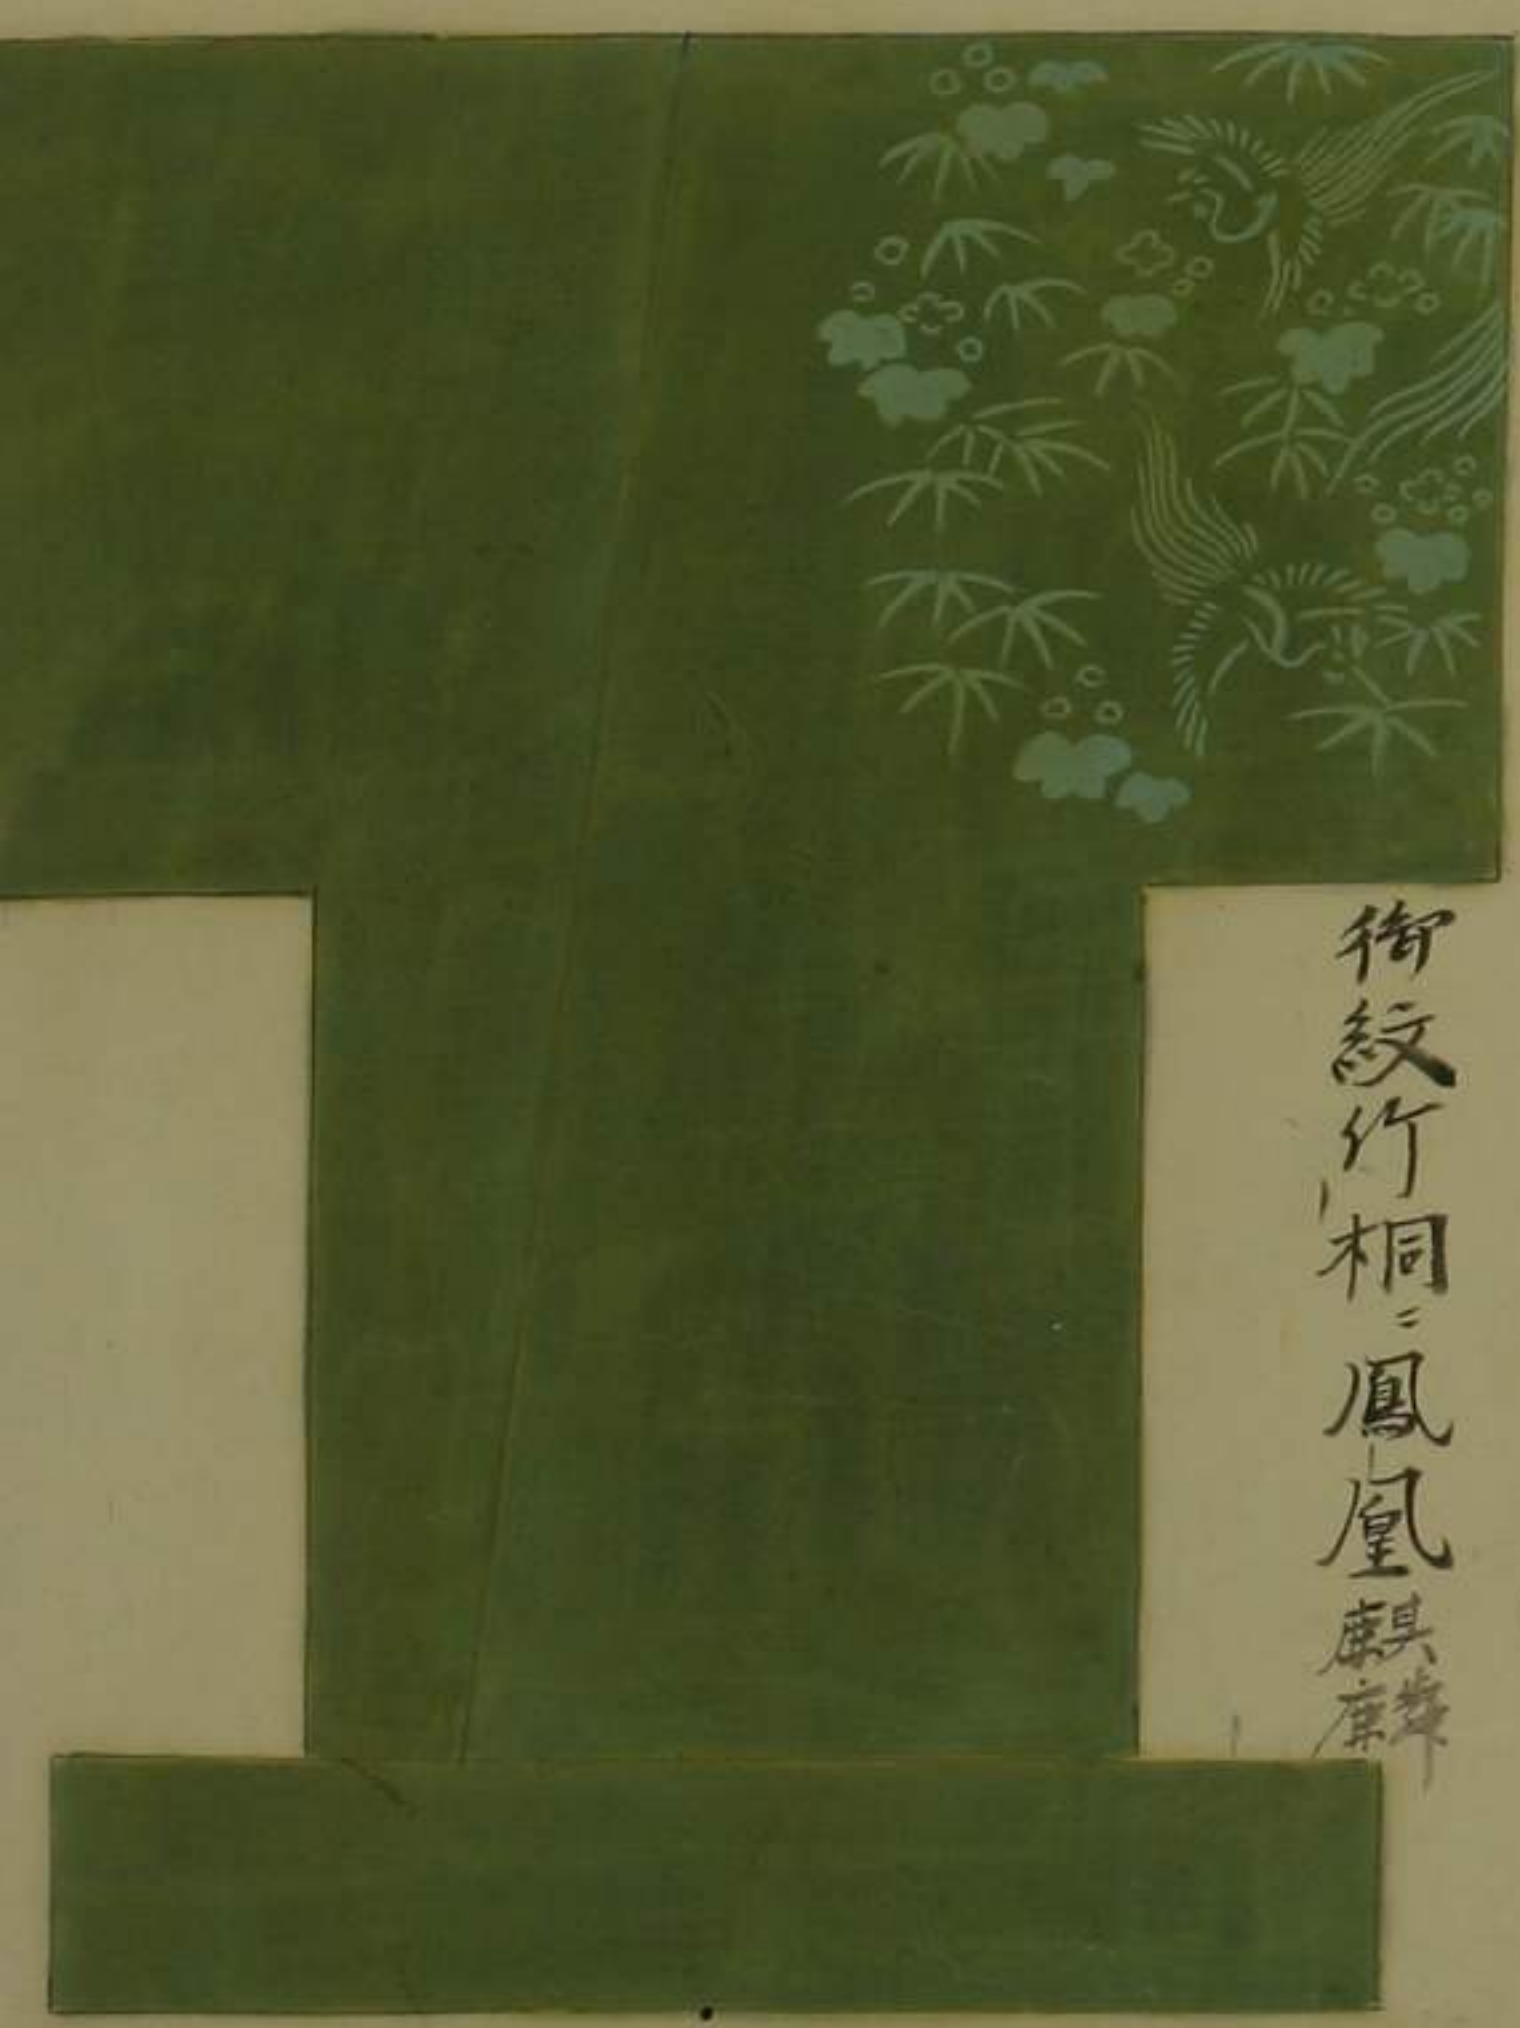 御紋竹桐ニ鳳凰麒麟